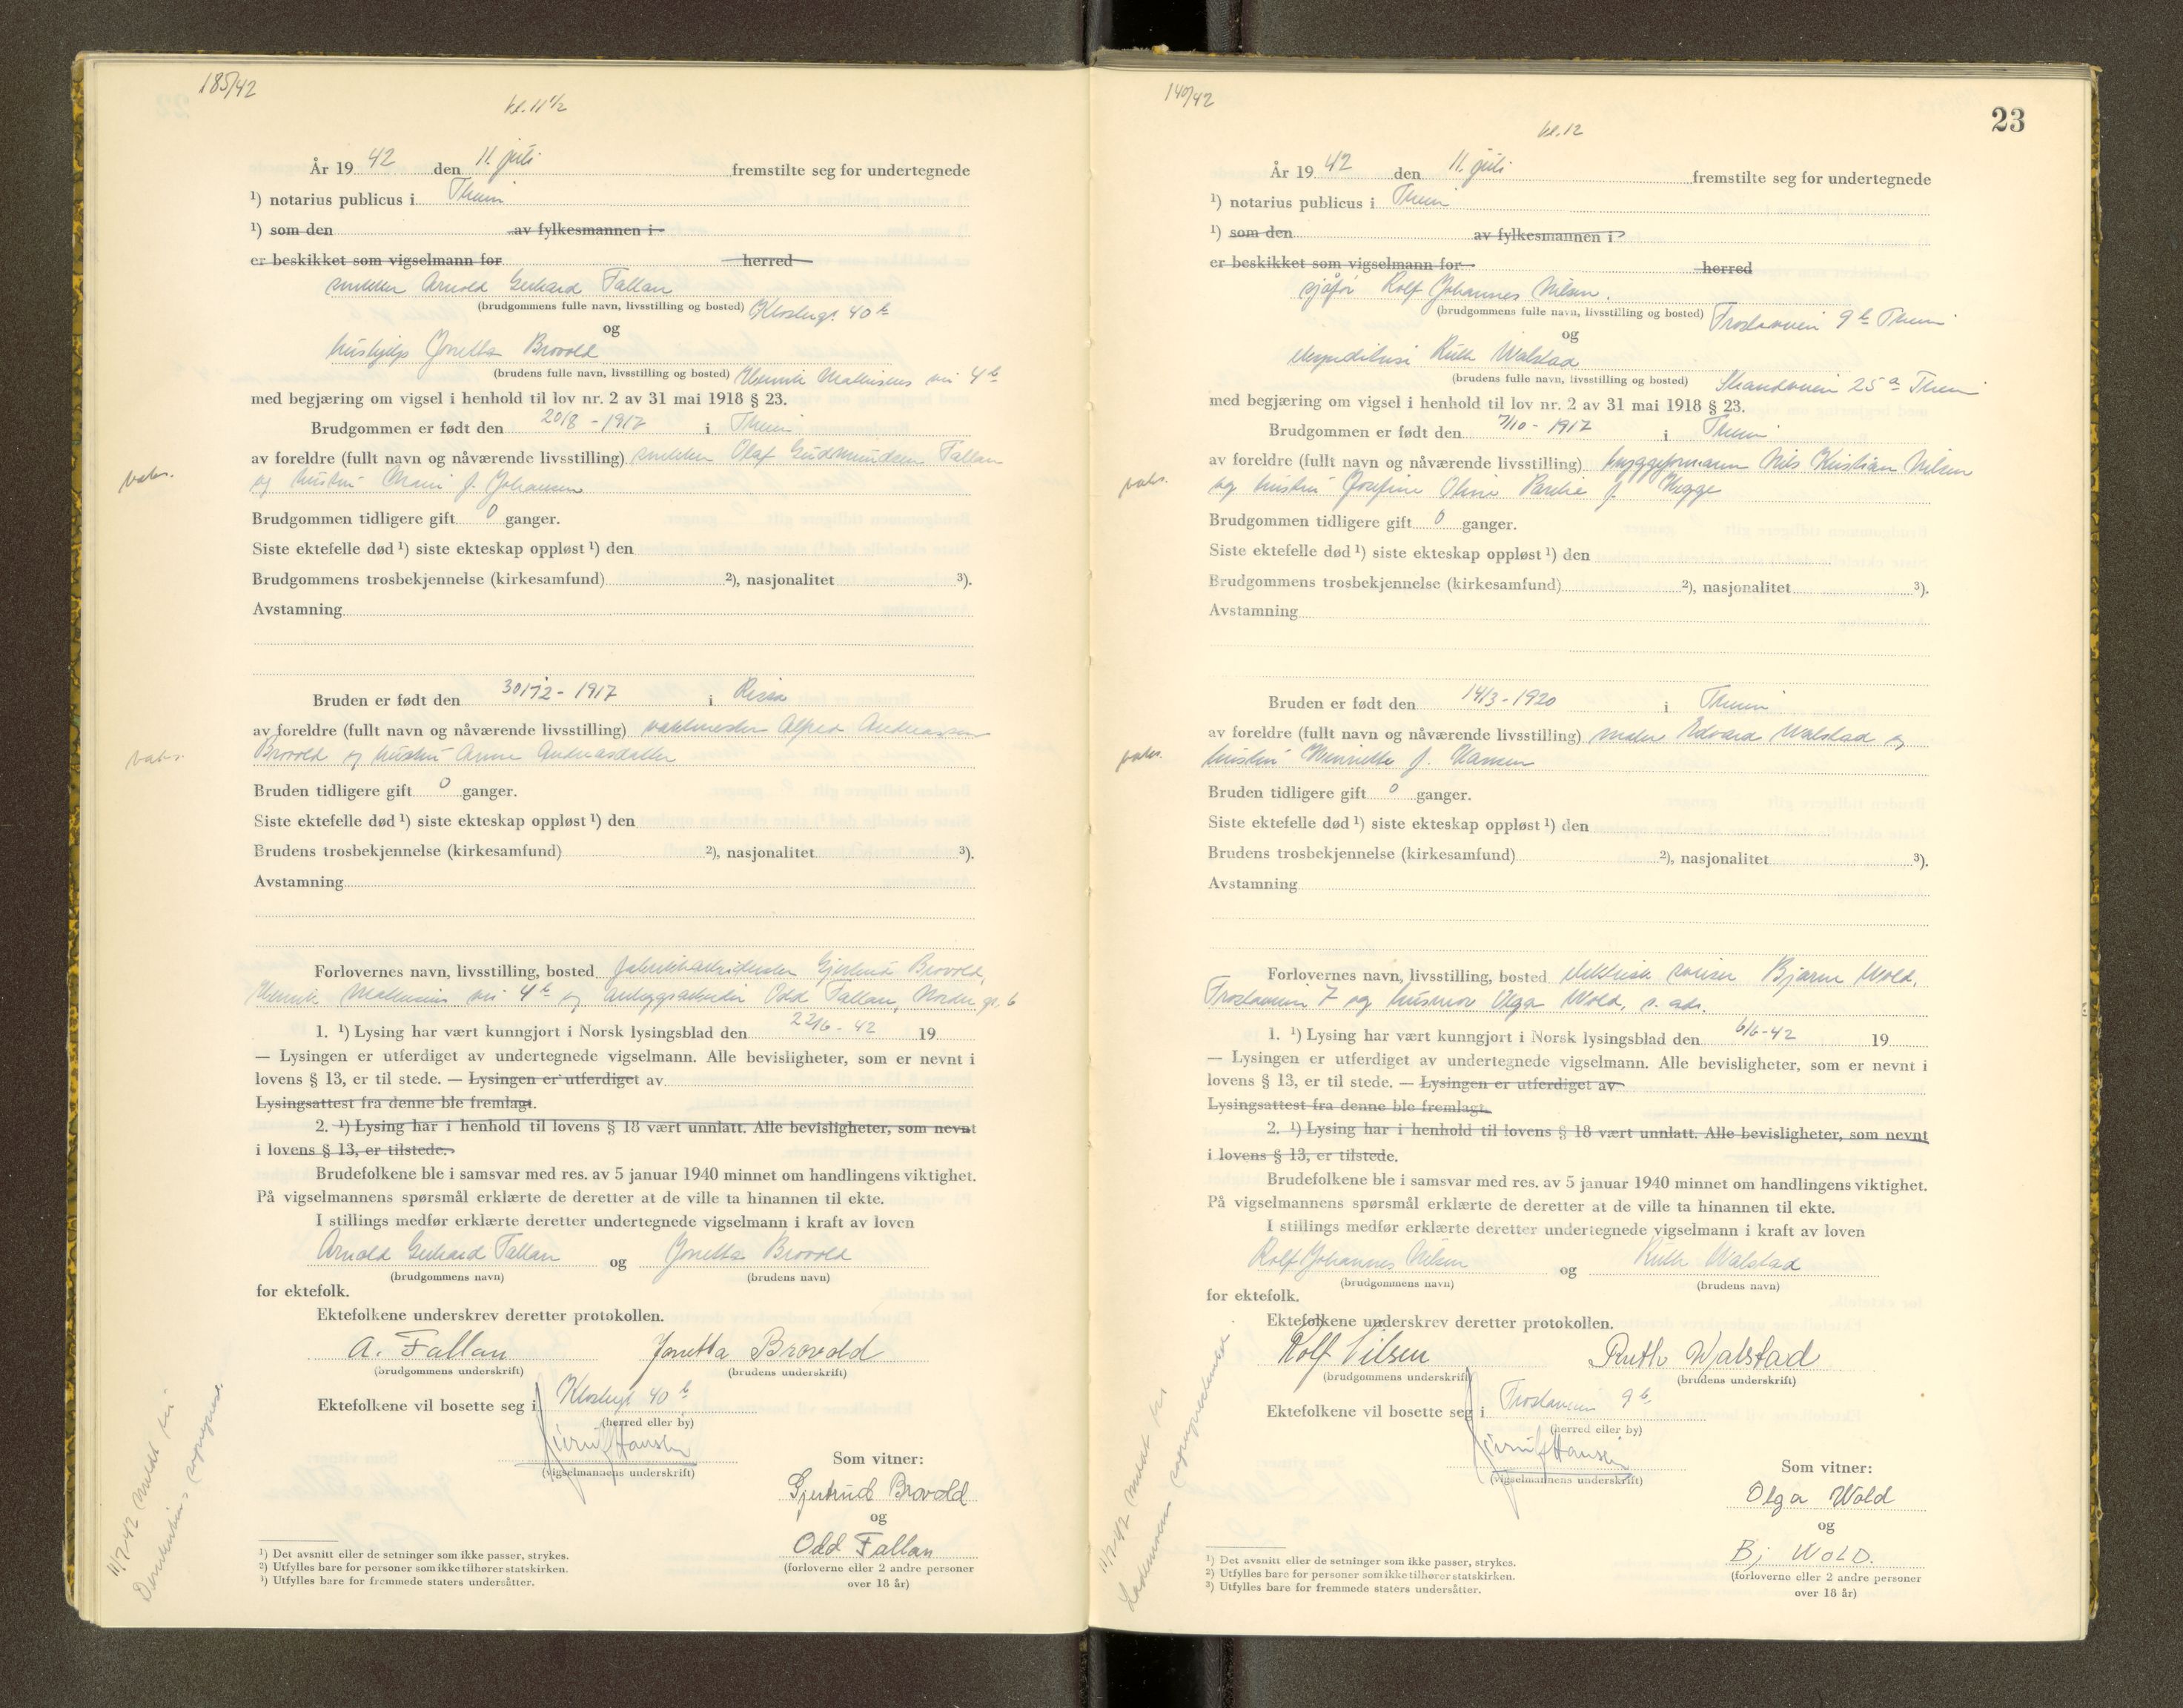 185/42
kl. 11 1/2
År 19 42 den 11. juli fremstilte seg for undertegnede
1) notarius publicus i Thum
1) som den av fylkesmannen i
er beskikket som vigselmann for herred
snekker Arnold Gerhard Fallan
(brudgommens fulle navn, livsstilling og bosted) Klostergt. 40 b
og
hushjelp Jonetta Brovold
(brudens fulle navn, livsstilling og bosted) Henrik Mathisens vei 4 b
med begjæring om vigsel i henhold til lov nr. 2 av 31 mai 1918 § 23.
Brudgommen er født den 20/8 - 1917 i Thum
av foreldre (fullt navn og nåværende livsstilling) snekker Olaf Gudmundsen Fallan
og hustru f. Johansen
Brudgommen tidligere gift 0 ganger.
Siste ektefelle død 1) siste ekteskap oppløst 1) den
Brudgommens trosbekjennelse (kirkesamfund) 2), nasjonalitet 3).
Avstamning
Bruden er født den 30/12 - 1917 i Rissa
av foreldre (fullt navn og nåværende livsstilling) vaktmester Alfred Andreassen
Brovold og hustru Anna Andreasdatter
Bruden tidligere gift 0 ganger.
Siste ektefelle død 1) siste ekteskap oppløst 1) den
Brudens trosbekjennelse (kirkesamfund) 2), nasjonalitet 3).
Avstamning
Forlovernes navn, livsstilling, bosted fabrikkarbeiderske Gjertrud Brovold,
Henrik Mathisens vei 4 b og anleggsarbeider Odd Fallan, Nordre gt. 6
1. 1) Lysing har vært kunngjort i Norsk lysingsblad den 22/6 - 42 19
— Lysingen er utferdiget av undertegnede vigselmann. Alle bevisligheter, som er nevnt i
lovens § 13, er til stede. — Lysingen er utferdiget av
Lysingsattest fra denne ble fremlagt.
2. 1) Lysing har i henhold til lovens § 18 vært unnlatt. Alle bevisligheter, som nevnt
i lovens § 13, er tilstede.
Brudefolkene ble i samsvar med res. av 5 januar 1940 minnet om handlingens viktighet.
På vigselmannens spørsmål erklærte de deretter at de ville ta hinannen til ekte.
I stillings medfør erklærte deretter undertegnede vigselmann i kraft av loven
Arnold Gerhard Fallan og Jonetta Brovold
(brudgommens navn) (brudens navn)
for ektefolk.
Ektefolkene underskrev deretter protokollen.
A. Fallan Jonetta Brovold
(brudgommens underskrift) (brudens underskrift)
Ektefolkene vil bosette seg i Klostergt 40 b
(herred eller by)
Hansen
(vigselmannens underskrift)
Som vitner:
Gjertrud Brovold
og
Odd Fallan
(forloverne eller 2 andre personer
over 18 år)
1) Det avsnitt eller de setninger som ikke passer, strykes.
2) Utfylles bare for personer som ikke tilhører statskirken.
3) Utfylles bare for fremmede staters undersåtter.
11/7-42 meldt til
sogneprest.
140/42
kl. 12
23
År 19 42 den 11. juli fremstilte seg for undertegnede
1) notarius publicus i Thum
1) som den av fylkesmannen i
er beskikket som vigselmann for herred
sjåfør Rolf Johannes Nilsen.
(brudgommens fulle navn, livsstilling og bosted) 9 b Thum
og
ekspeditrise Ruth Walstad
(brudens fulle navn, livsstilling og bosted) Strandveien 25 a Thum
med begjæring om vigsel i henhold til lov nr. 2 av 31 mai 1918 § 23.
Brudgommen er født den 7/10 - 1917 i Thum
av foreldre (fullt navn og nåværende livsstilling) byggeformann Nils Kristian Nilsen
og hustru Josefine Oline f. Hegge
Brudgommen tidligere gift 0 ganger.
Siste ektefelle død 1) siste ekteskap oppløst 1) den
Brudgommens trosbekjennelse (kirkesamfund) 2), nasjonalitet 3).
Avstamning
Bruden er født den 14/3 - 1920 i Thum
av foreldre (fullt navn og nåværende livsstilling) maler Edvard Walstad og
hustru Henriette f. Hansen
Bruden tidligere gift 0 ganger.
Siste ektefelle død 1) siste ekteskap oppløst 1) den
Brudens trosbekjennelse (kirkesamfund) 2), nasjonalitet 3).
Avstamning
Forlovernes navn, livsstilling, bosted elektrisk sveiser Bjarne Wold,
7 og husmor Olga Wold, s. ads.
1. 1) Lysing har vært kunngjort i Norsk lysingsblad den 6/6-42 19
— Lysingen er utferdiget av undertegnede vigselmann. Alle bevisligheter, som er nevnt i
lovens § 13, er til stede. — Lysingen er utferdiget av
Lysingsattest fra denne ble fremlagt.
2. 1) Lysing har i henhold til lovens § 18 vært unnlatt. Alle bevisligheter, som nevnt
i lovens § 13, er tilstede.
Brudefolkene ble i samsvar med res. av 5 januar 1940 minnet om handlingens viktighet.
På vigselmannens spørsmål erklærte de deretter at de ville ta hinannen til ekte.
I stillings medfør erklærte deretter undertegnede vigselmann i kraft av loven
Rolf Johannes Nilsen og Ruth Walstad
(brudgommens navn) (brudens navn)
for ektefolk.
Ektefolkene underskrev deretter protokollen.
Rolf Nilsen Ruth Walstad
(brudgommens underskrift) (brudens underskrift)
Ektefolkene vil bosette seg i 9 b
(herred eller by)
Hansen
(vigselmannens underskrift)
Som vitner:
Olga Wold
og
Bj WOLD.
(forloverne eller 2 andre personer
over 18 år)
1) Det avsnitt eller de setninger som ikke passer, strykes.
2) Utfylles bare for personer som ikke tilhører statskirken.
3) Utfylles bare for fremmede staters undersåtter.
11/7-42 meldt til